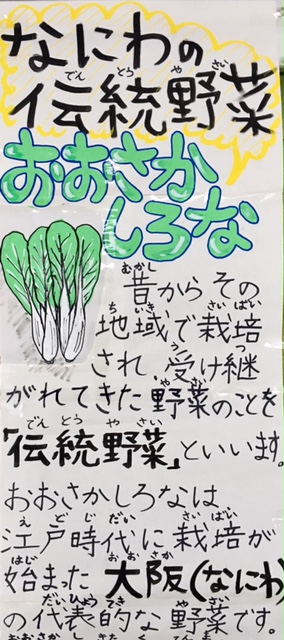 なにわの
でんとうやさい
伝統野菜
おおさか
しろな
むかし
昔からその
ちいき さいばい
地域で栽培
う つ
され、受け継
やさい
がれてきた野菜のことを
でんとうやさい
「伝統野菜」といいます。
おおさかしろなは
えどじだい さいばい
江戸時代に栽培が
はじ おおさか
始まった 大阪(なにわ)
だいひょうてき やさい
の代表的な野菜です。